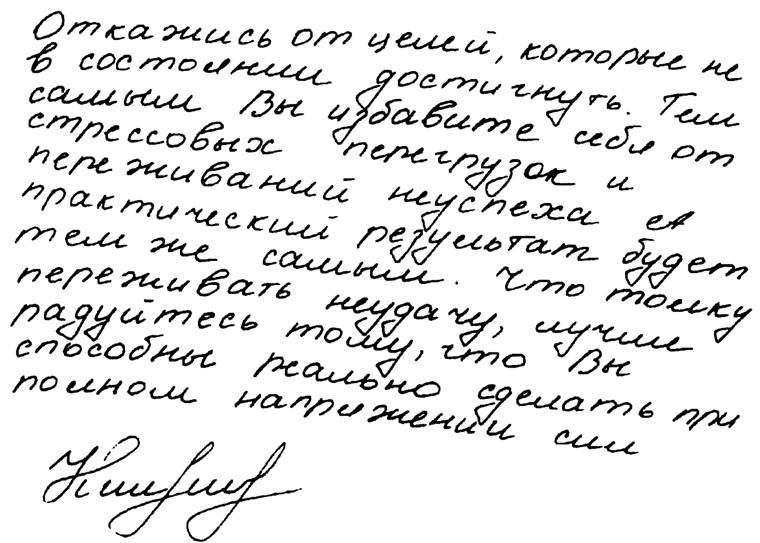 Откажись от целей, которые не
в состоянии достигнуть. Тем
самым Вы избавите себя от
стрессовых перегрузок и
переживаний неуспеха. А
практический результат будет
тем же самым. Что толку
переживать неудачу, лучше
радуйтесь тому, что Вы
способны реально сделать при
полном напряжении сил